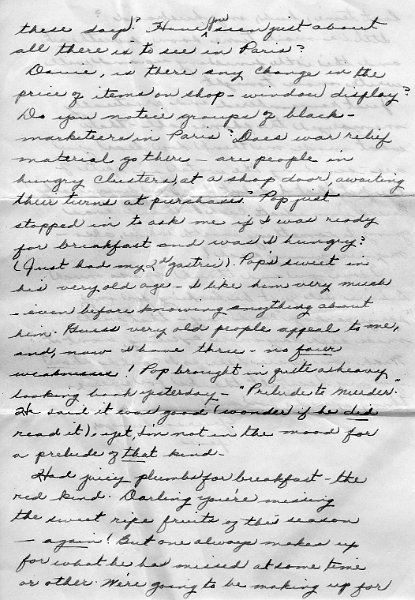 these days? Have you seen just about
all there is to see in Paris?
Dannie, is there any change in the
price of items on shop-window display?
Do you notice groups of black-
marketeers in Paris? Does war relief
material go there - are people in
hungry clusters, at a shop door, awaiting
their turns at purchases? Pop just
stopped in to ask me if I was ready
for breakfast and was I hungry?
(Just had my 2nd). Pop's sweet in
his very old age - I like him very much
- even before knowing anything about
him. Guess very old people appeal to me,
and, now I have three - no four
weaknesses! Pop brought in quite a heavy
looking book yesterday - "Prelude to Murder."
He said it was good (wonder if he did
read it), yet, I'm not in the mood for
a prelude of that kind.
Had juicy plumbs for breakfast - the
red kind. Darling you're missing
the sweet ripe fruits of this season
- again! But one always makes up
for what he has missed at some time
or other. We're going to be making up for